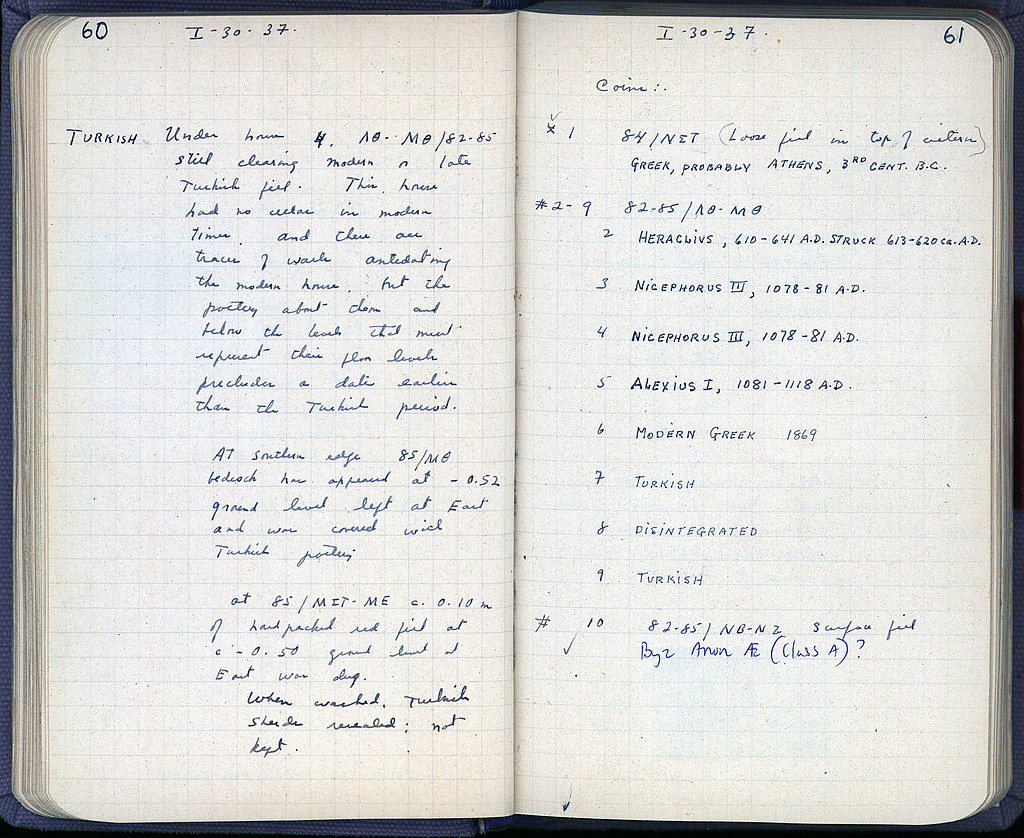 60
I-30-37.
TURKISH Under house 4, ΛΘ-ΜΘ/82-85
still clearing modern or late
Turkish fill. This house
had no cellar in modern
times, and there are
traces of walls antedating
the modern house, but the
pottery about them and
below the levels that must
represent their floor levels
precludes a date earlier
than the Turkish period.
At southern edge 85/ΜΘ
bedrock has appeared at -0.52
ground level left at East
and was covered with
Turkish pottery
at 85/ΜΣΤ-ΜΕ c. 0.10 m
of hard packed red fill at
c -0.50 ground level at
East was dug.
When washed, Turkish
sherds revealed; not
kept.
61
I-30-37.
Coins:
x 1 84/ΝΣΤ (Loose fill in top of cistern)
GREEK, PROBABLY ATHENS, 3RD CENT. B.C.
#2-9 82-85/ΛΘ-ΜΘ
2 HERACLIUS, 610-641 A.D. STRUCK 613-620 ca. A.D.
3 NICEPHORUS III, 1078-81 A.D.
4 NICEPHORUS III, 1078-81 A.D.
5 ALEXIUS I, 1081-1118 A.D.
6 MODERN GREEK 1869
7 TURKISH
8 DISINTEGRATED
9 TURKISH
# 10 82-85/ΝΘ-ΝΖ Surface fill
✓ Byz Anon Æ (Class A)?